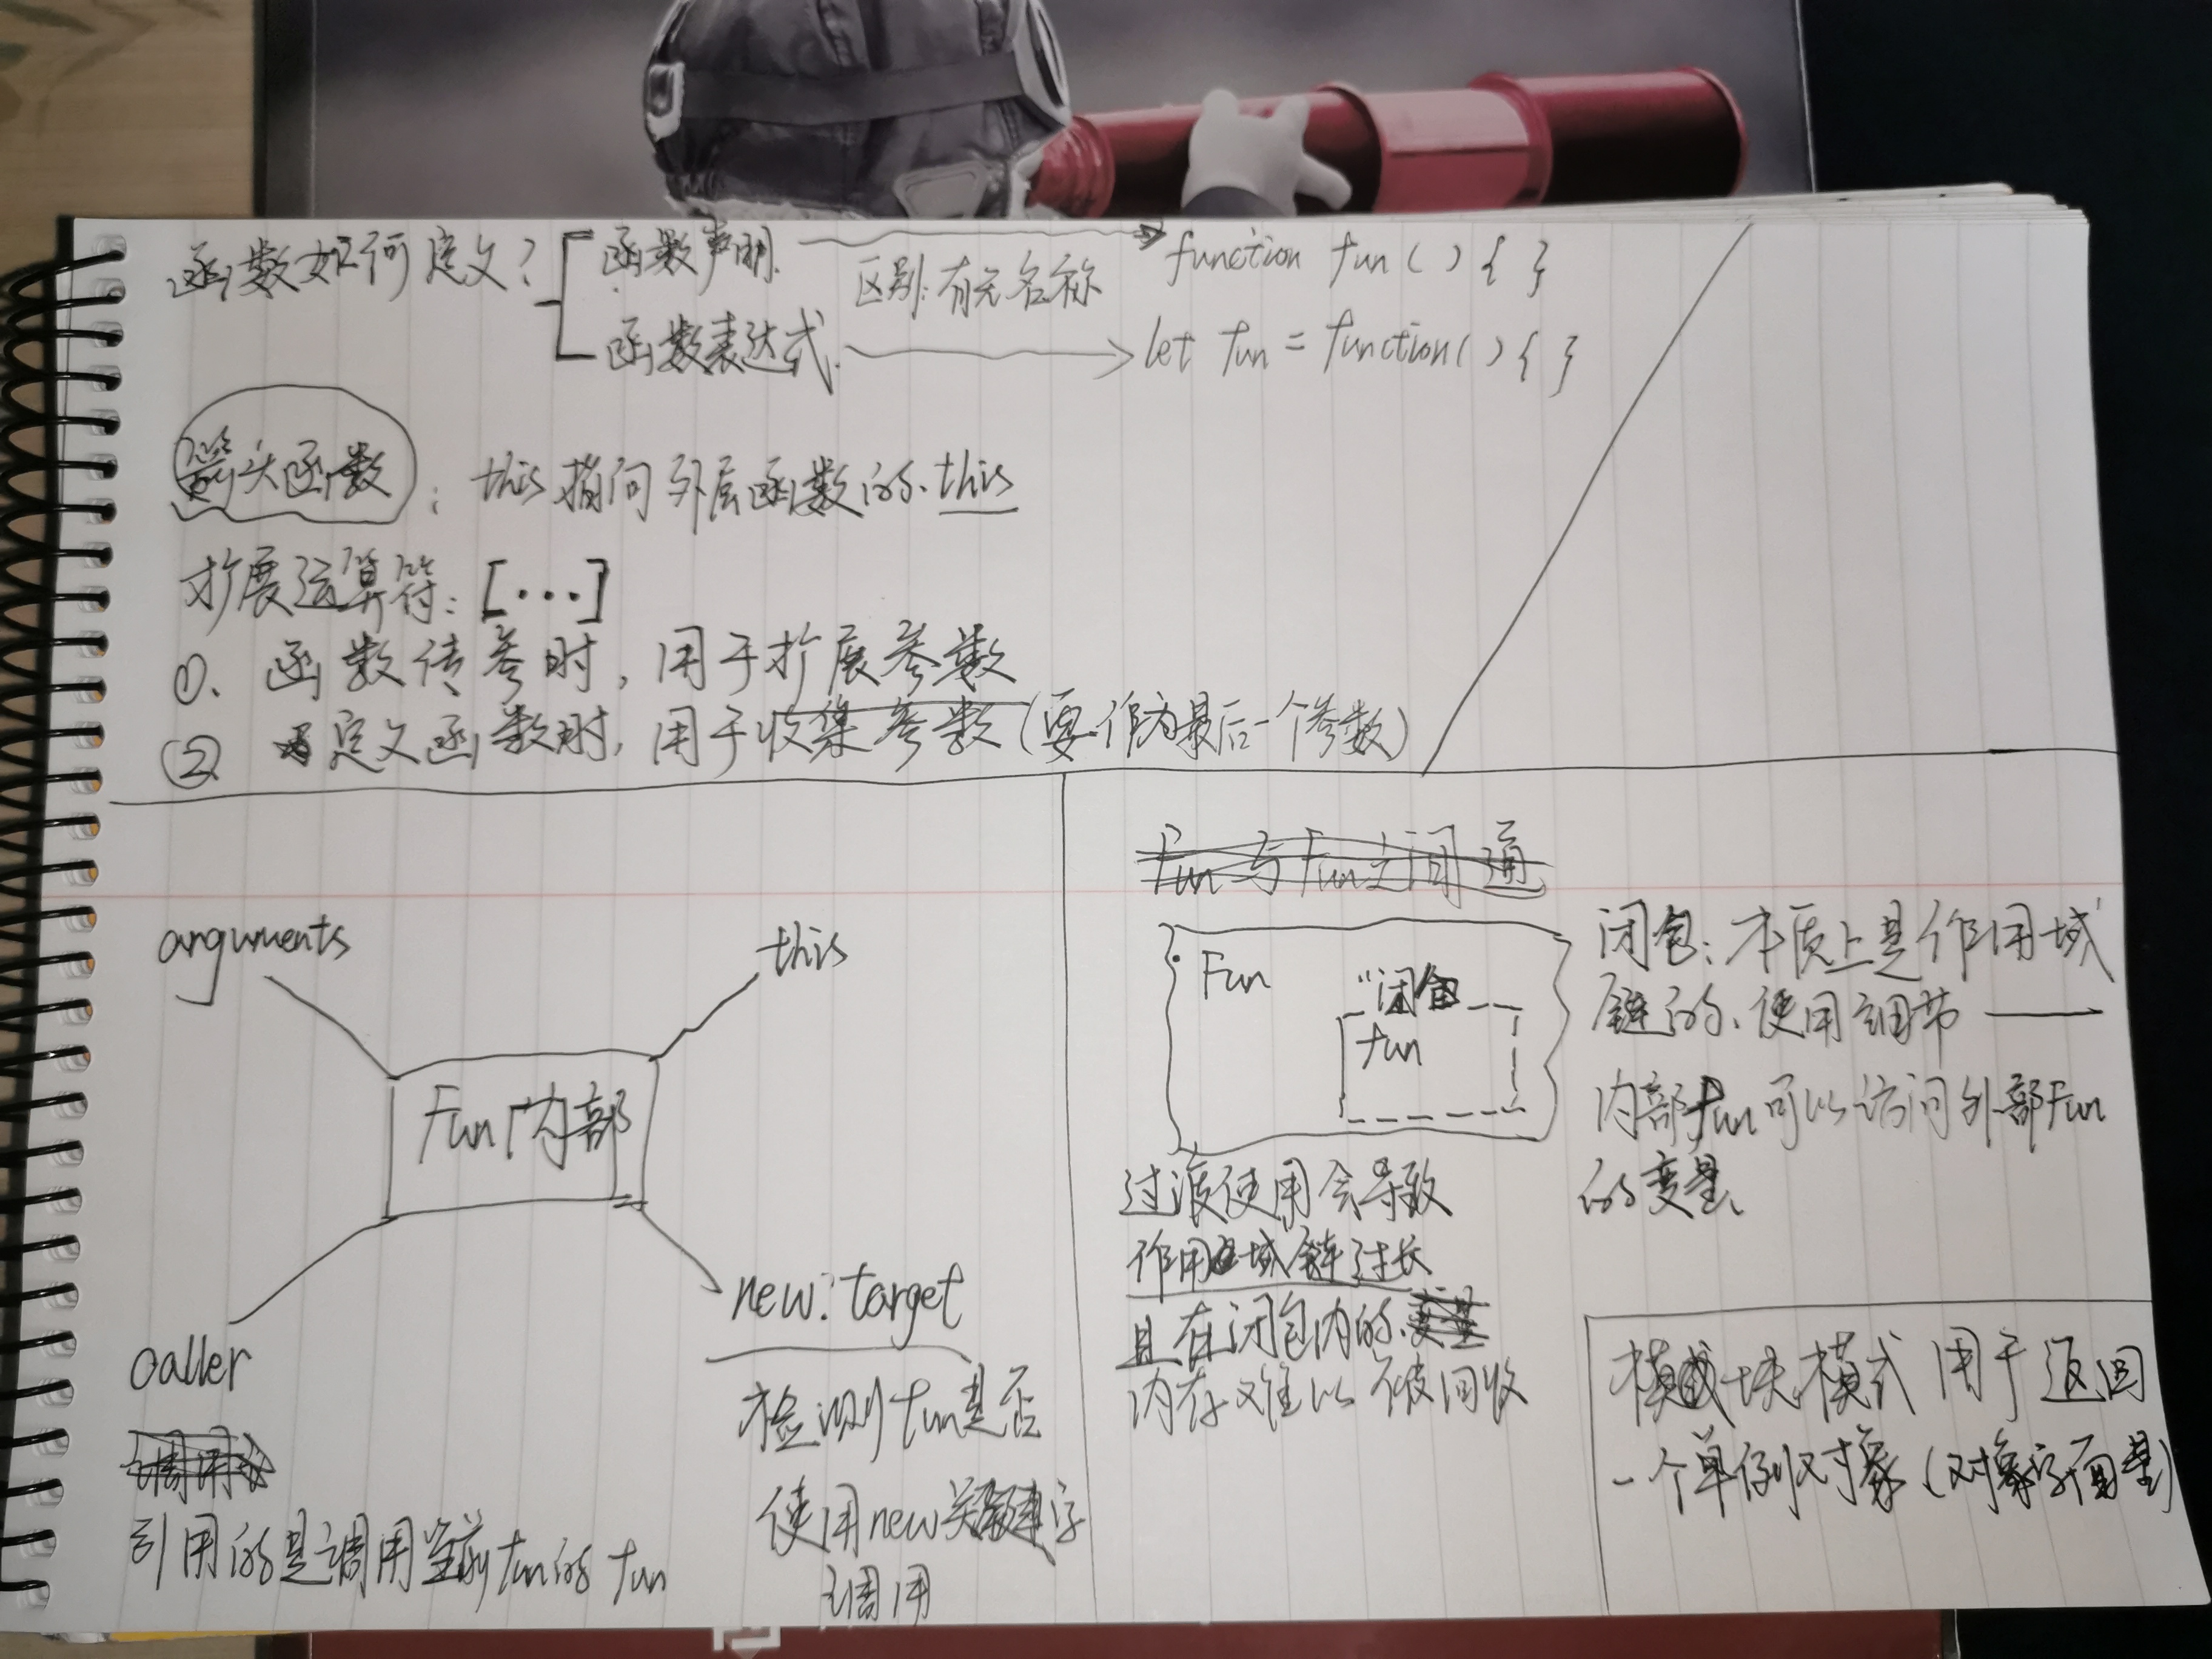 函数如何定义？
函数声明.
区别:有无名称
function fun ( ) { }
函数表达式.
let fun = function( ) { }
箭头函数 : this指向外层函数的.this
扩展运算符: [...]
①. 函数传参时, 用于扩展参数
② 定义函数时, 用于收集参数(要作为最后一个参数)
arguments
this
Fun内部
caller
引用的是调用当前fun的fun
new.target
检测fun是否
使用new关键字
调用
Fun与Fun之间通
Fun
"闭包
fun
过渡使用会导致
作用域链过长
且在闭包内的变量
内存难以被回收
闭包: 本质上是作用域
链的、使用细节 ——
内部fun可以访问外部Fun
的变量、
模块模式 用于返回
一个单例对象(对象字面量)